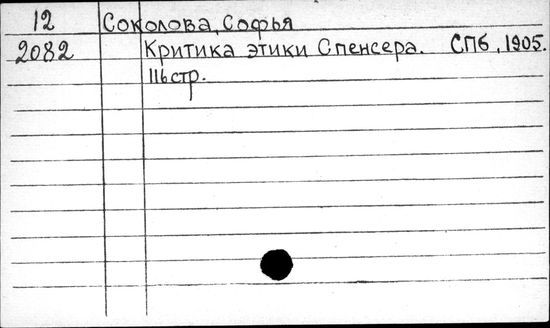 12 Соколова, Софья
2082 Критика этики Спенсера. СПб, 1905.
116стр.